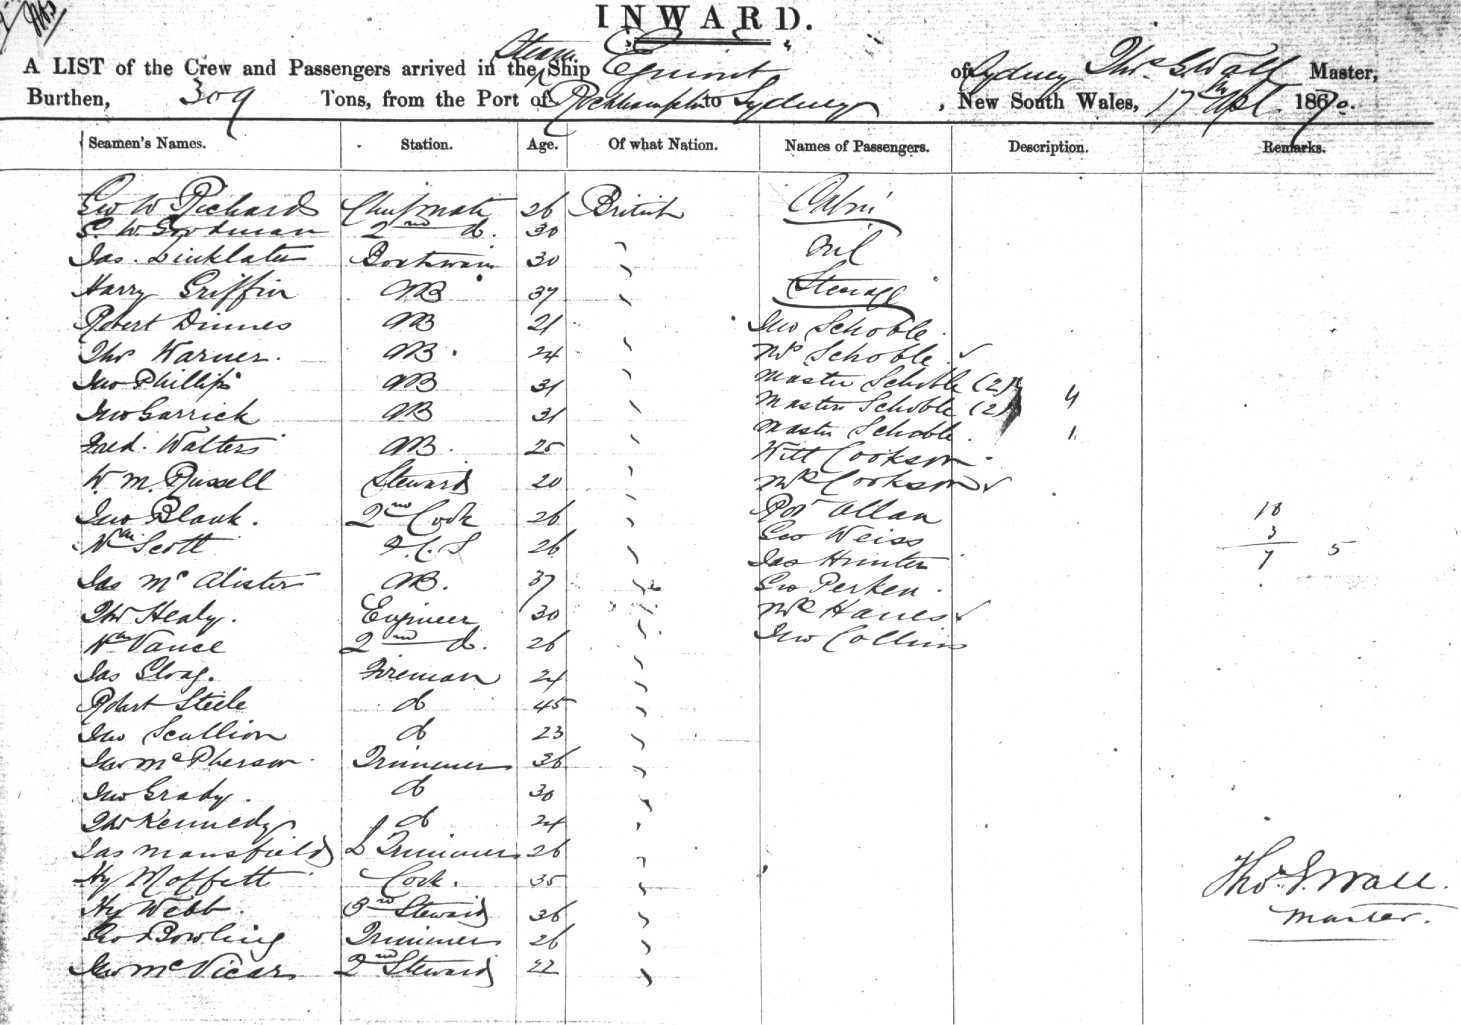 INWARD.
A LIST of the Crew and Passengers arrived in the Steam Ship Egmont of Sydney Thos. S. Wall Master,
Burthen, 309 Tons, from the Port of Rockhampton to Sydney, New South Wales, 17th Apl. 1870.
Seamen's Names. Station. Age. Of what Nation. Names of Passengers. Description. Remarks.
Geo W Richards Chief Mate 26 British Cabin
S. W. Goodman 2nd do. 30
Jas. Linklater Boatswain 30 Nil
Harry Griffin AB 37 Steerage
Robert Dinnes AB 21 Jno Schoble.
Thos Warner. AB. 24 Mrs Schoble
Jno Phillips AB 31 Master Schoble (2) 4
Jno Garrick AB 31 Masters Schoble (2)
Fred. Walters AB. 25 Master Schoble. 1
Witt Cookson
W. M. Russell Steward 20 Mrs Cookson
Jno Blank. 2nd Cook 26 Robt Allan 10
Wm Scott 26 Geo Weiss 3
Jas Hunter 7 5
Jas McAlister AB. 37 Geo Perken.
Thos Healy. Engineer 30 Mrs Hanes
Wm Vance 2nd do. 26 Jno Collins
Jas Sloag. Fireman 24
Robert Steele do 45
Jno Scullion do 23
Jno McPherson Trimmer 36
Jno Grady. do 30
Thos Kennedy do 24
Jas Mansfield Trimmer 26
Hy Moffett Cook. 35 Thos. S. Wall.
Hy Webb. 3rd Steward 36 Master.
Bowling Trimmer 26
Jno McVicar 2nd Steward 22